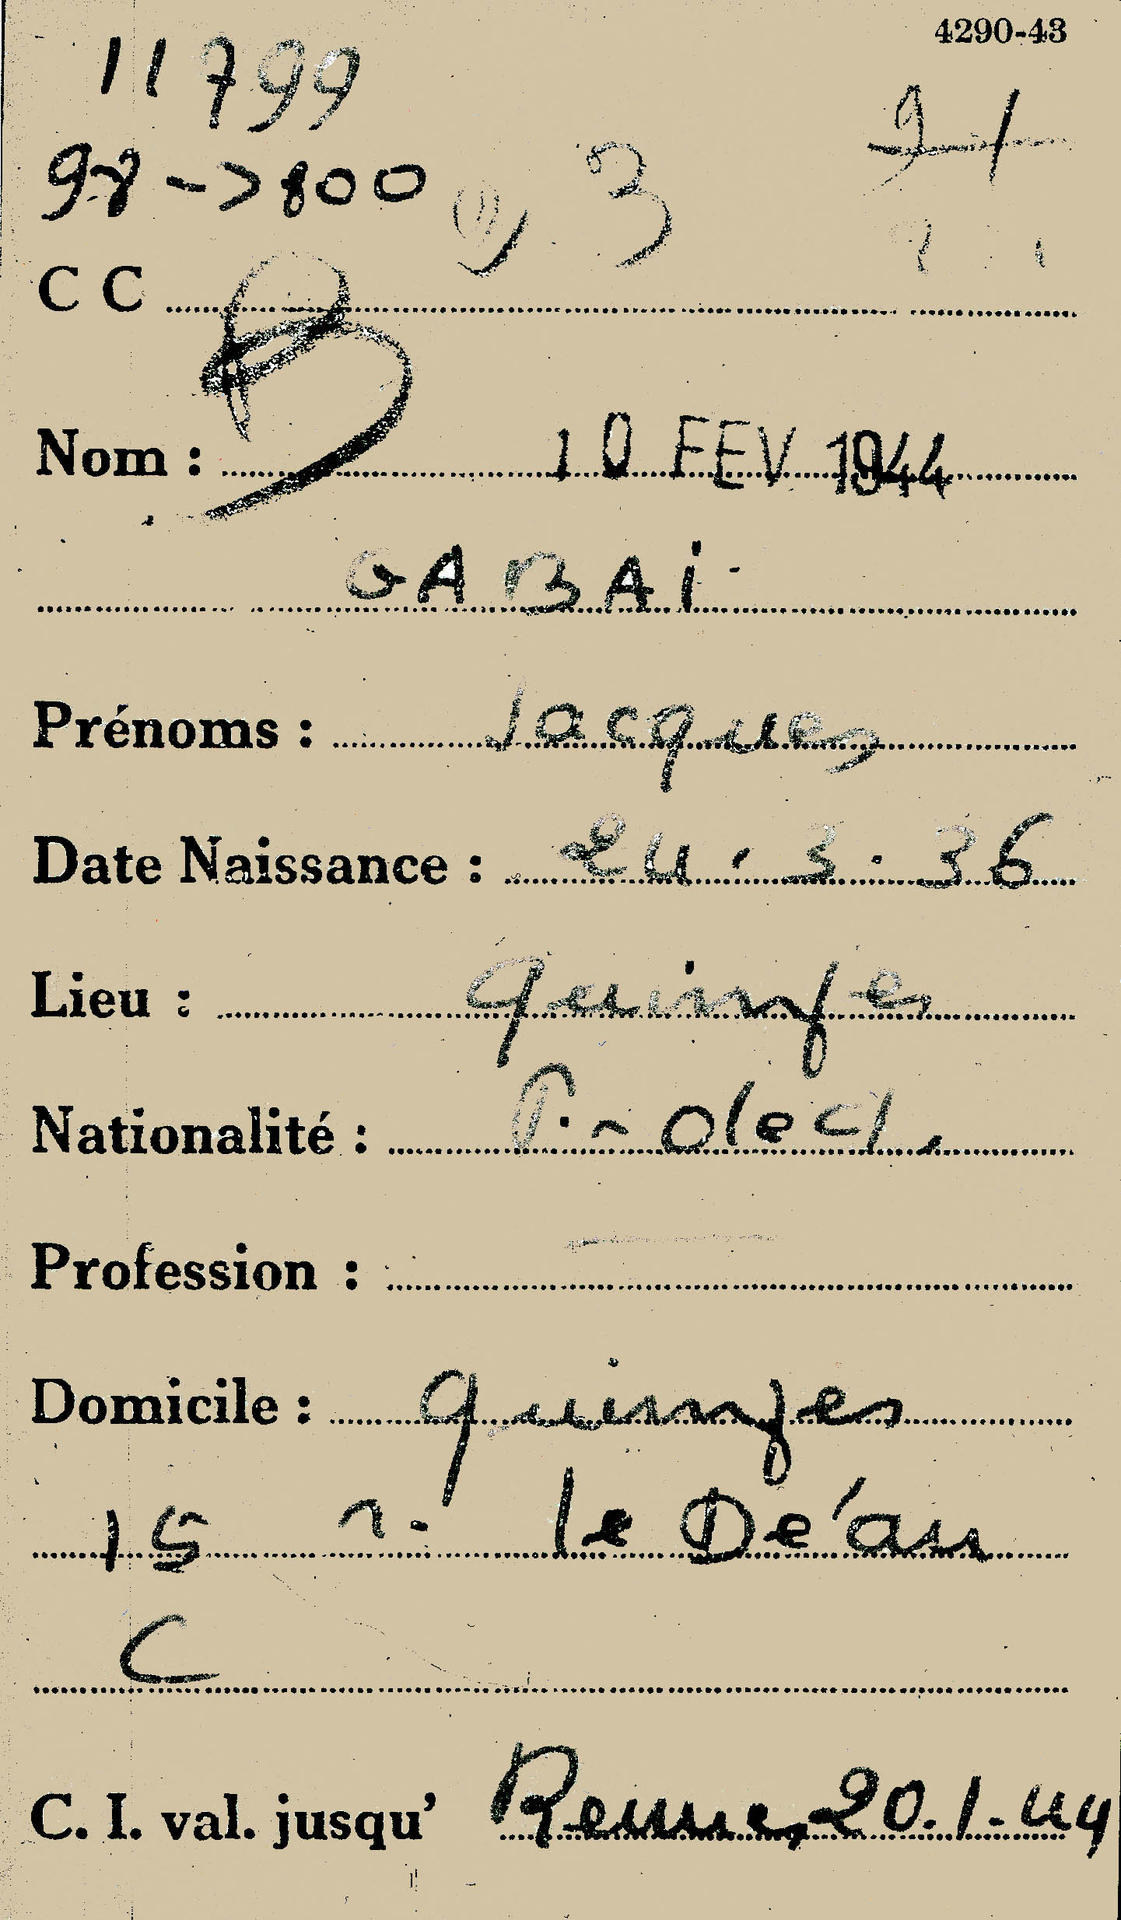 4290-43
11799
98 -> 800
3
91
CC
B
Nom : 10 FEV 1944
GABAI
Prénoms : Jacques
Date Naissance : 24.3.36
Lieu : Quimper
Nationalité :
Profession : —
Domicile : Quimper
15 r. le Déan
C
C. I. val. jusqu' Rennes 20.1.44